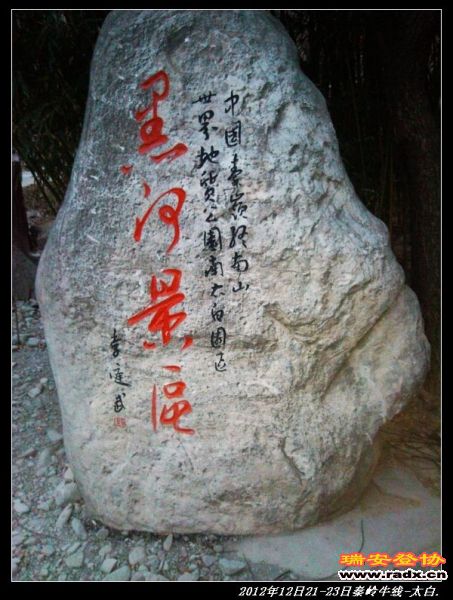 中国秦岭终南山
世界地质公园南太白园区
黑河景區
李庭武
瑞安登协
www.radx.cn
2012年12月21-23日秦岭牛线-太白.